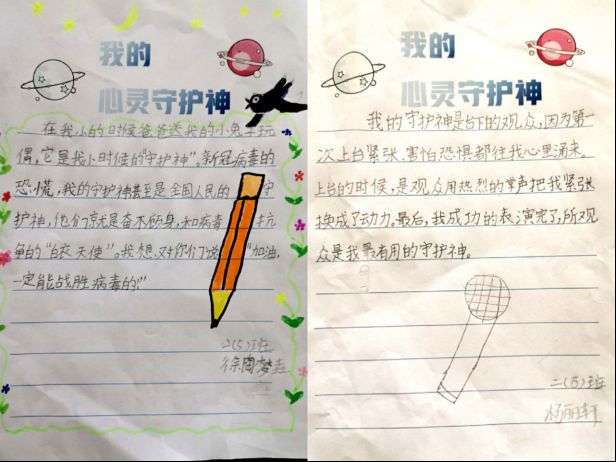 我的
心灵守护神
在我小的时候爸爸送我的小兔子玩
偶,它是我小时候的“守护神”。新冠病毒的
恐慌,我的守护神甚至是全国人民的 守
护神,他们就是奋不顾身,和病毒 抗
争的“白衣天使”。我想对你们说 “加油,
一定能战胜病毒的!”
二(5)班
徐
我的
心灵守护神
我的守护神是台下的观众,因为第一
次上台紧张、害怕恐惧都往我心里涌来。
上台的时候,是观众用热烈的掌声把我紧张
换成了动力。最后,我成功的表演完了,所观
众是我最有用的守护神。
二(5)班
杨